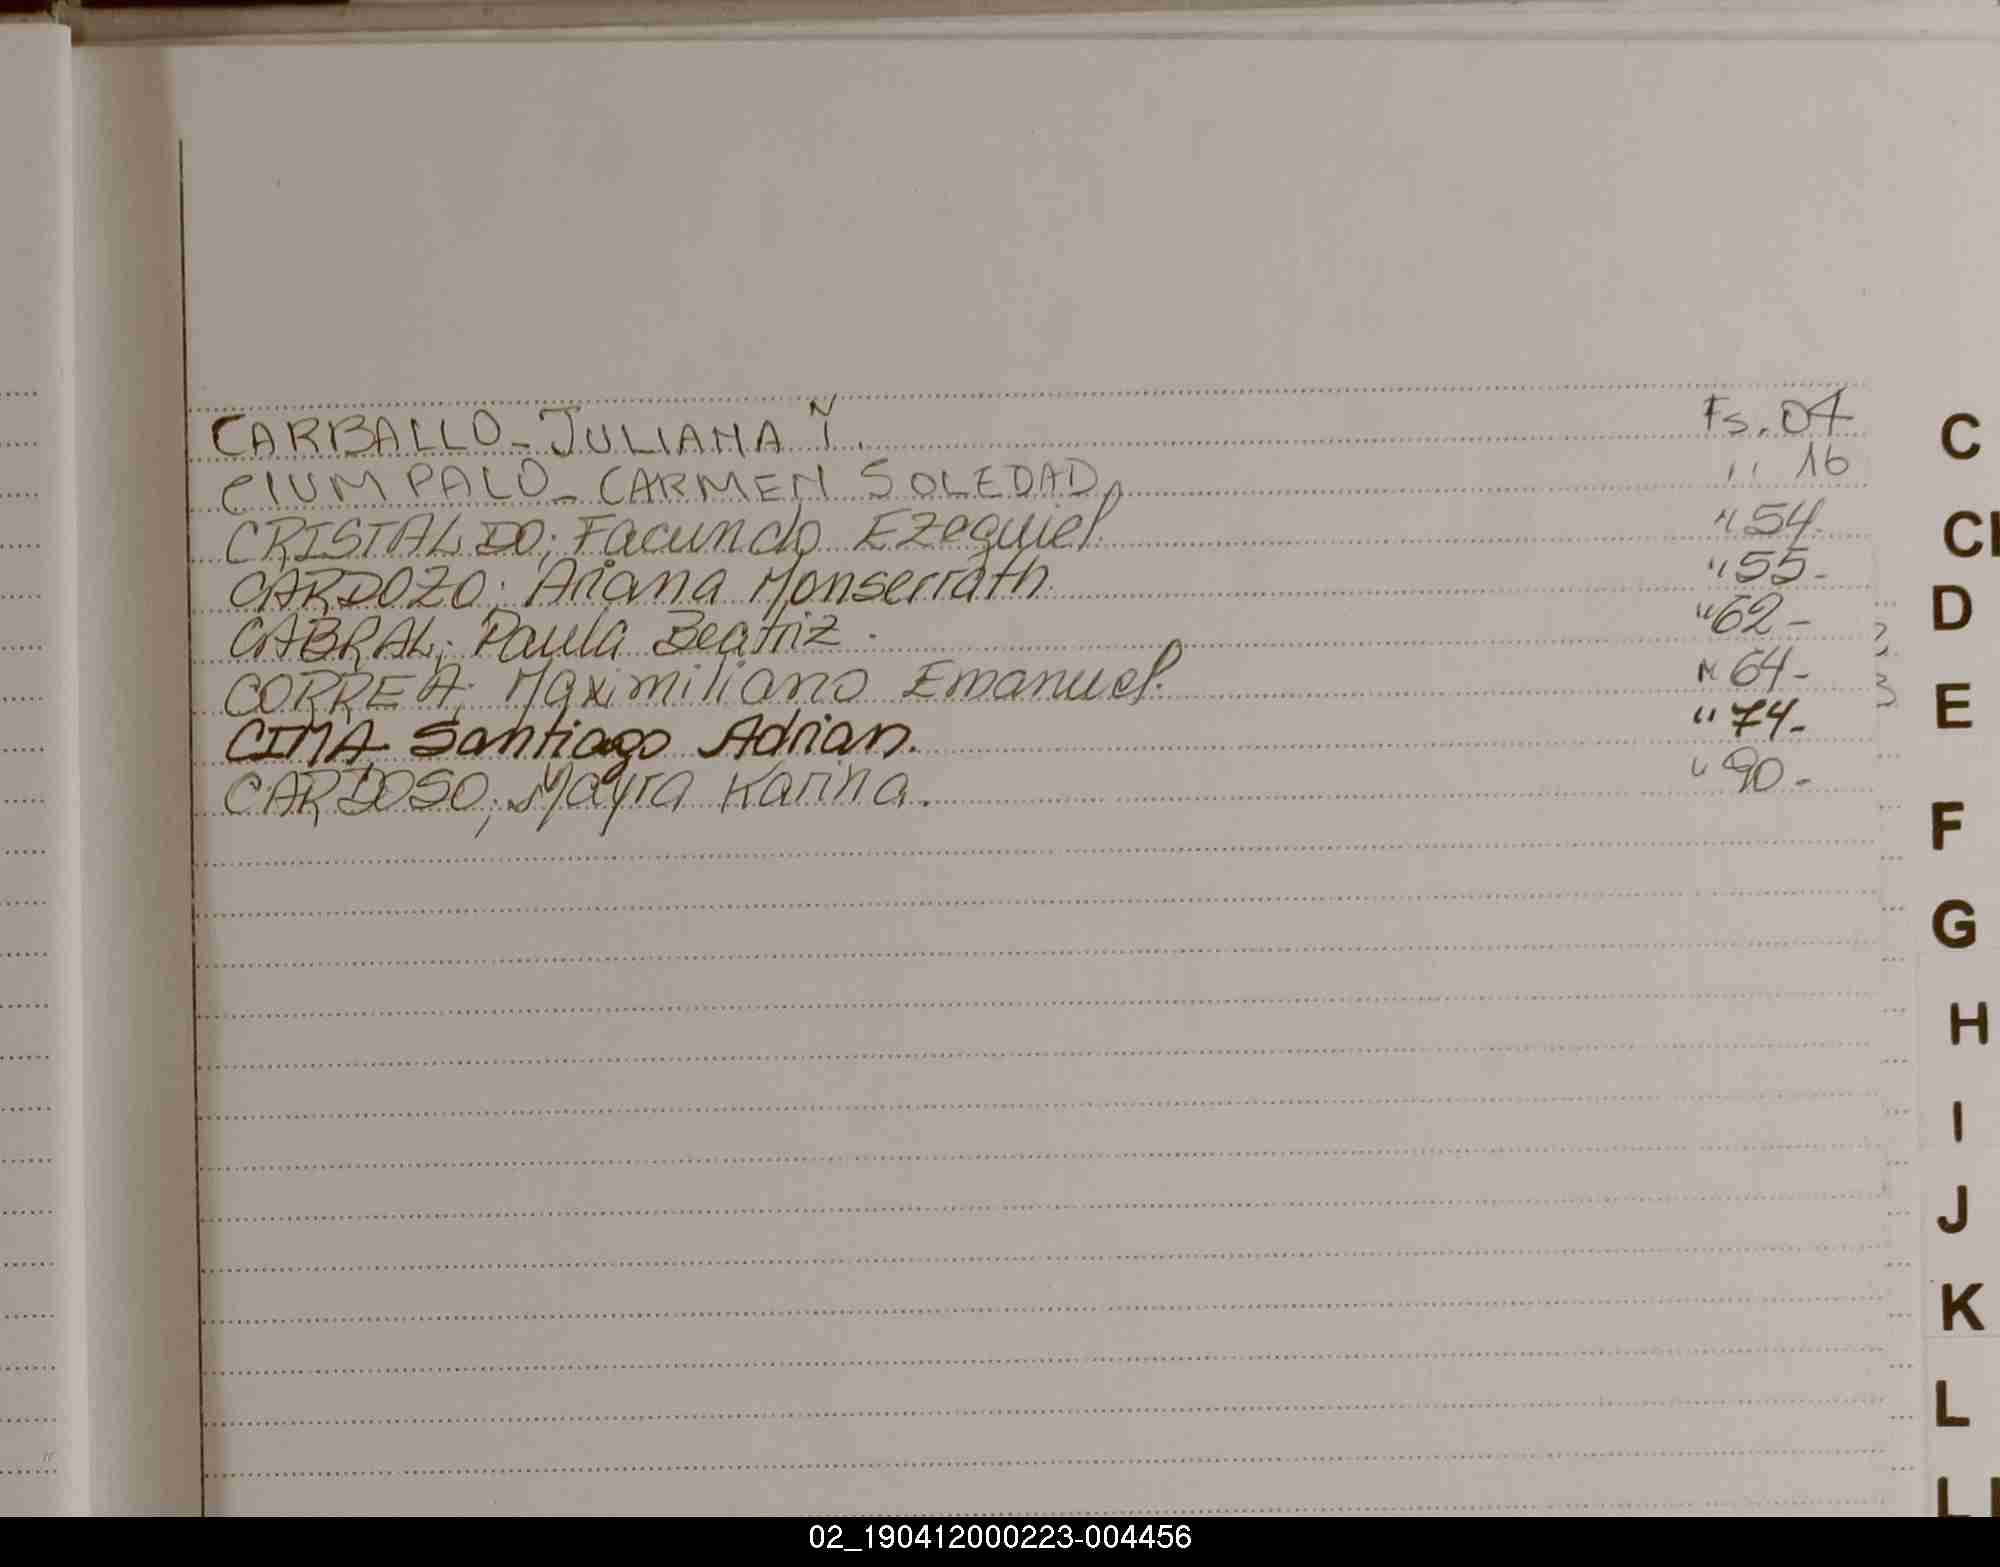 CARBALLO - JULIANA Y. Fs. 04
CIUMPALO - CARMEN SOLEDAD, '' 16
CRISTALDO; Facundo Ezequiel. " 54.
CARDOZO; Ariana Monserrath. " 55-
CABRAL; Paula Beatriz. " 62-
CORREA; Maximiliano Emanuel. " 64-
CIMA Santiago Adrian. " 74-
CARDOSO; Mayra Karina. " 90-
C
D
E
F
G
H
I
J
K
L
02_190412000223-004456